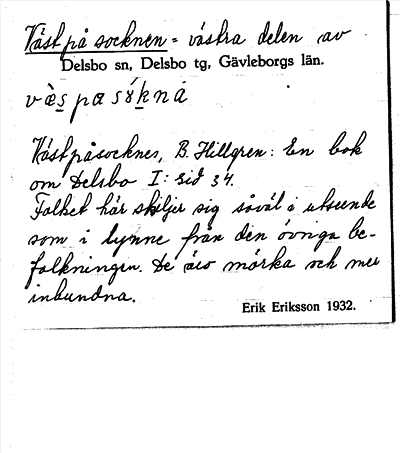 Väst på socknen = västra delen av
Delsbo sn, Delsbo tg, Gävleborgs län.
Västpåsocknes, B. Hillgren: En bok
om Delsbo I: sid 34.
Folket här skiljer sig såväl i utseende
som i lynne från den övriga be-
folkningen. De äro mörka och mer
inbundna.
Erik Eriksson 1932.